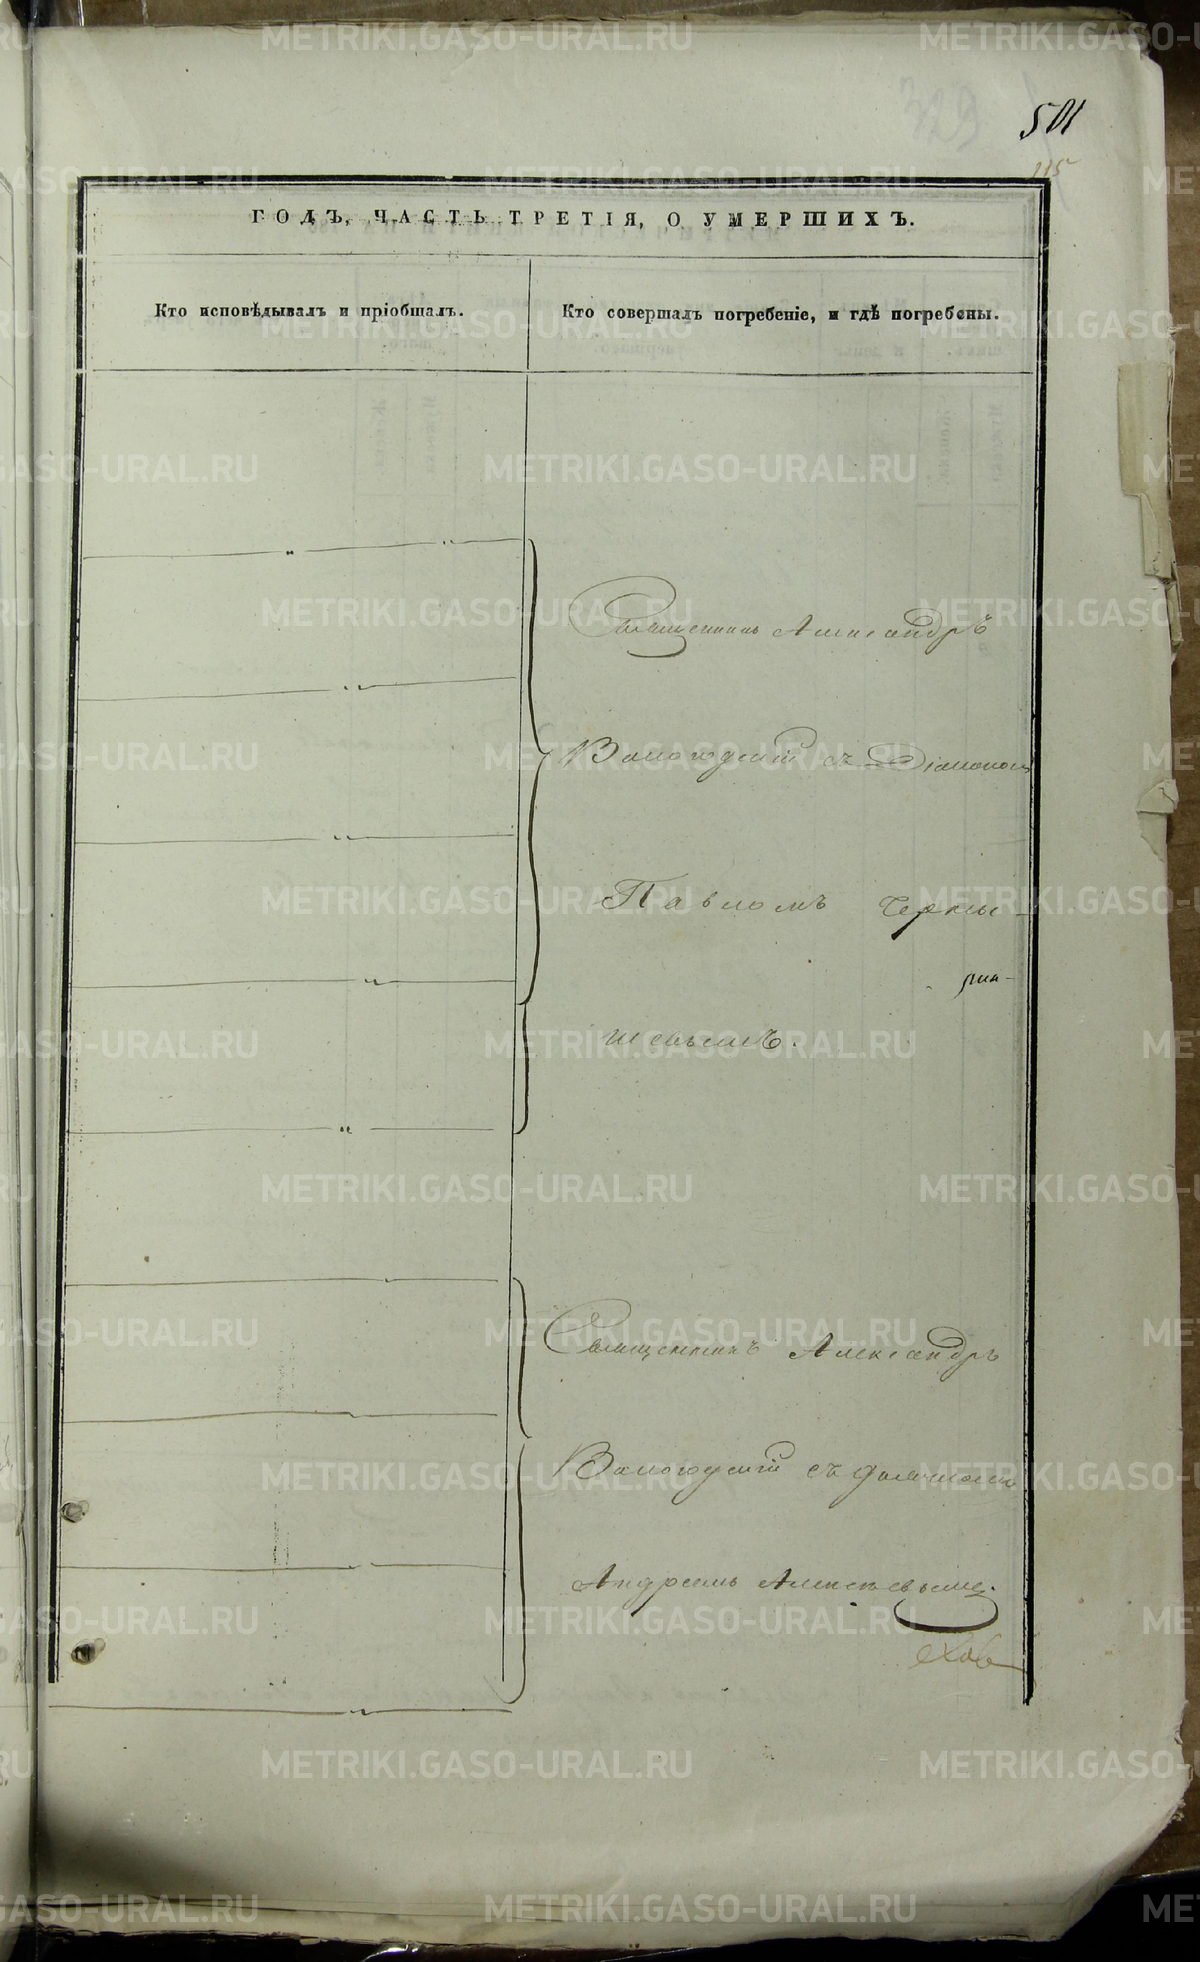 501
ГОДЪ, ЧАСТЬ ТРЕТІЯ, О УМЕРШИХЪ.
Кто исповѣдывалъ и пріобщалъ.
Кто совершалъ погребеніе, и гдѣ погребены.
Священникъ Александръ
Вологодскій съ Діакономъ
Павломъ Черны-
шевымъ.
Священникъ Александръ
Вологодскій съ дьячкомъ
Андреемъ
METRIKI.GASO-URAL.RU